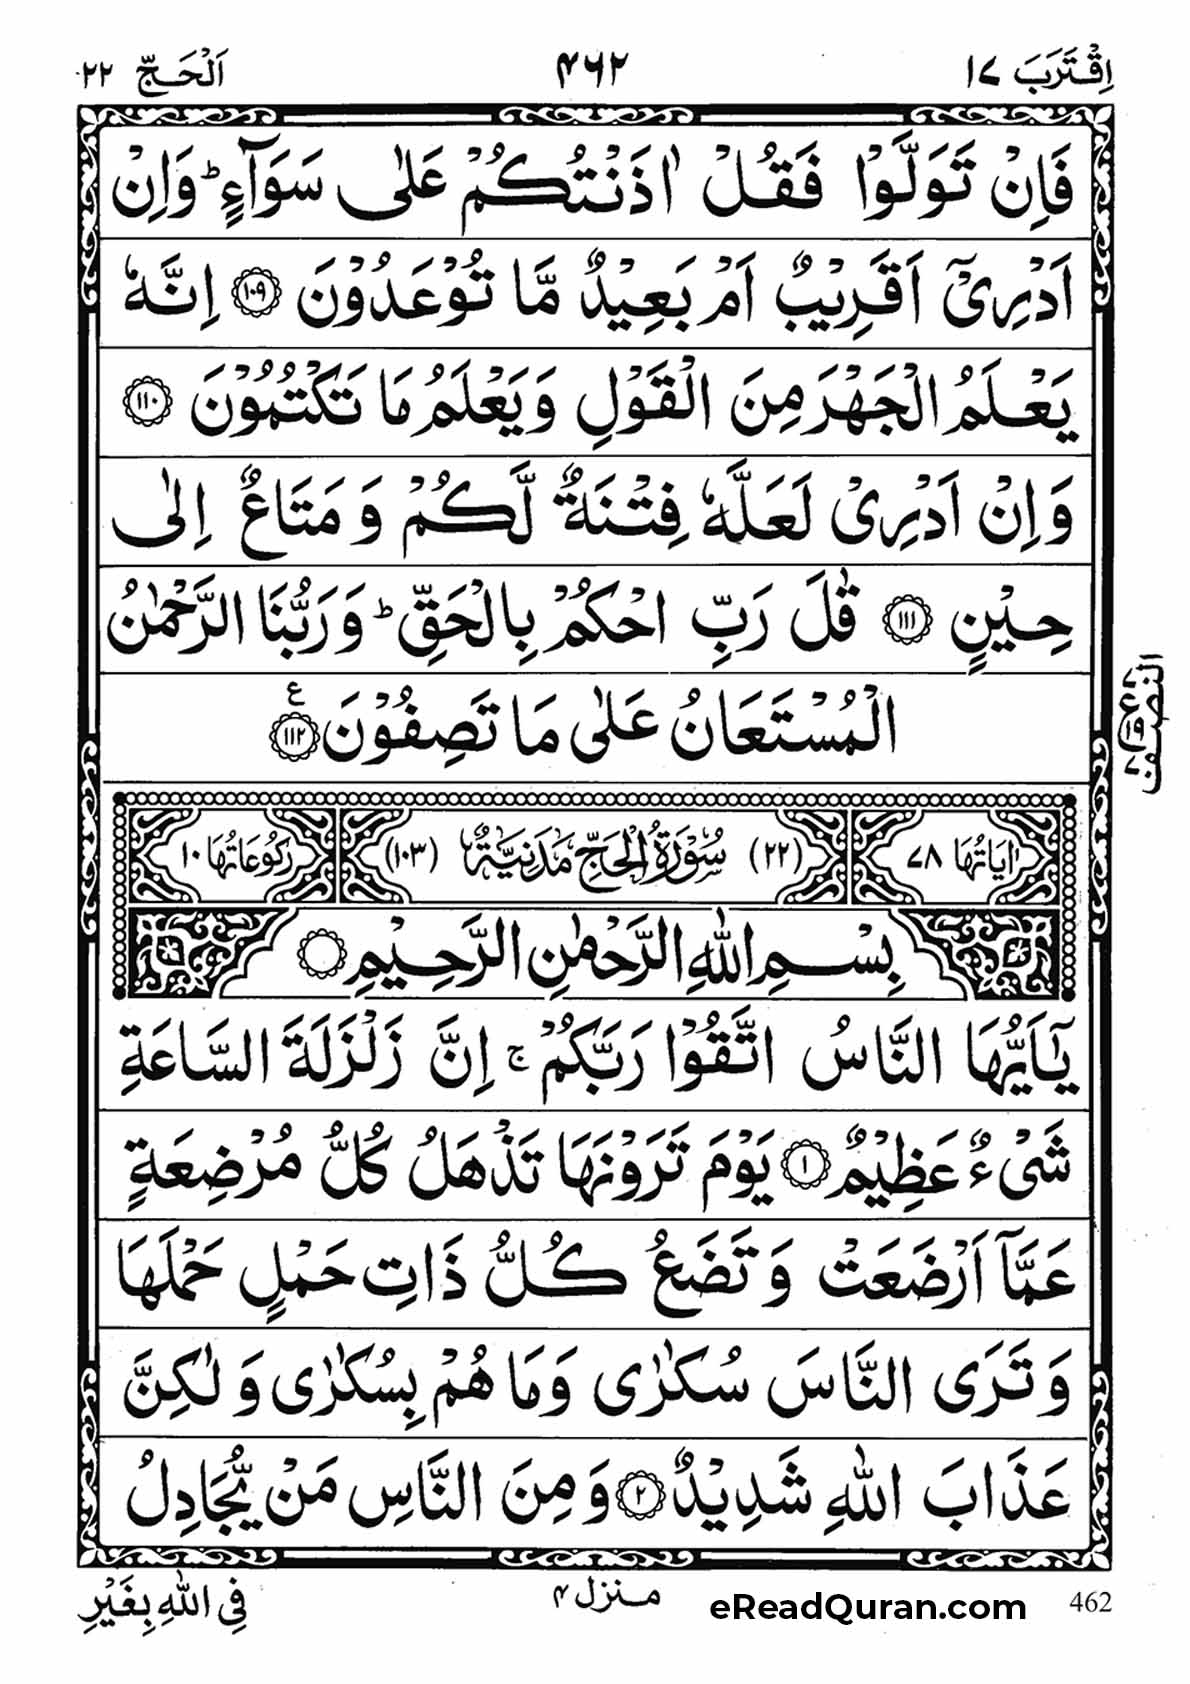 اِقْتَرَبَ ١٧
٤٦٢
اَلْحَجّ ٢٢
فَاِنْ تَوَلَّوْا فَقُلْ اٰذَنْتُكُمْ عَلٰى سَوَآءٍ ؕ وَاِنْ
اَدْرِىْۤ اَقَرِيْبٌ اَمْ بَعِيْدٌ مَّا تُوْعَدُوْنَ ﴿١٠٩﴾ اِنَّهٗ
يَعْلَمُ الْجَهْرَ مِنَ الْقَوْلِ وَيَعْلَمُ مَا تَكْتُمُوْنَ ﴿١١٠﴾
وَاِنْ اَدْرِىْ لَعَلَّهٗ فِتْنَةٌ لَّكُمْ وَمَتَاعٌ اِلٰى
حِيْنٍ ﴿١١١﴾ قٰلَ رَبِّ احْكُمْ بِالْحَقِّ ؕ وَرَبُّنَا الرَّحْمٰنُ
الْمُسْتَعَانُ عَلٰى مَا تَصِفُوْنَ ﴿١١٢﴾ ع
اٰيَاتُهَا ٧٨
(٢٢) سُوْرَةُ الْحَجِّ مَدَنِيَّةٌ (١٠٣)
رُكُوْعَاتُهَا ١٠
بِسْمِ اللّٰهِ الرَّحْمٰنِ الرَّحِيْمِ
يٰۤاَيُّهَا النَّاسُ اتَّقُوْا رَبَّكُمْ ۚ اِنَّ زَلْزَلَةَ السَّاعَةِ
شَىْءٌ عَظِيْمٌ ﴿١﴾ يَوْمَ تَرَوْنَهَا تَذْهَلُ كُلُّ مُرْضِعَةٍ
عَمَّاۤ اَرْضَعَتْ وَتَضَعُ كُلُّ ذَاتِ حَمْلٍ حَمْلَهَا
وَتَرَى النَّاسَ سُكٰرٰى وَمَا هُمْ بِسُكٰرٰى وَلٰكِنَّ
عَذَابَ اللّٰهِ شَدِيْدٌ ﴿٢﴾ وَمِنَ النَّاسِ مَنْ يُّجَادِلُ
النصف
منزل ٤
فِى اللّٰهِ بِغَيْرِ
eReadQuran.com
462